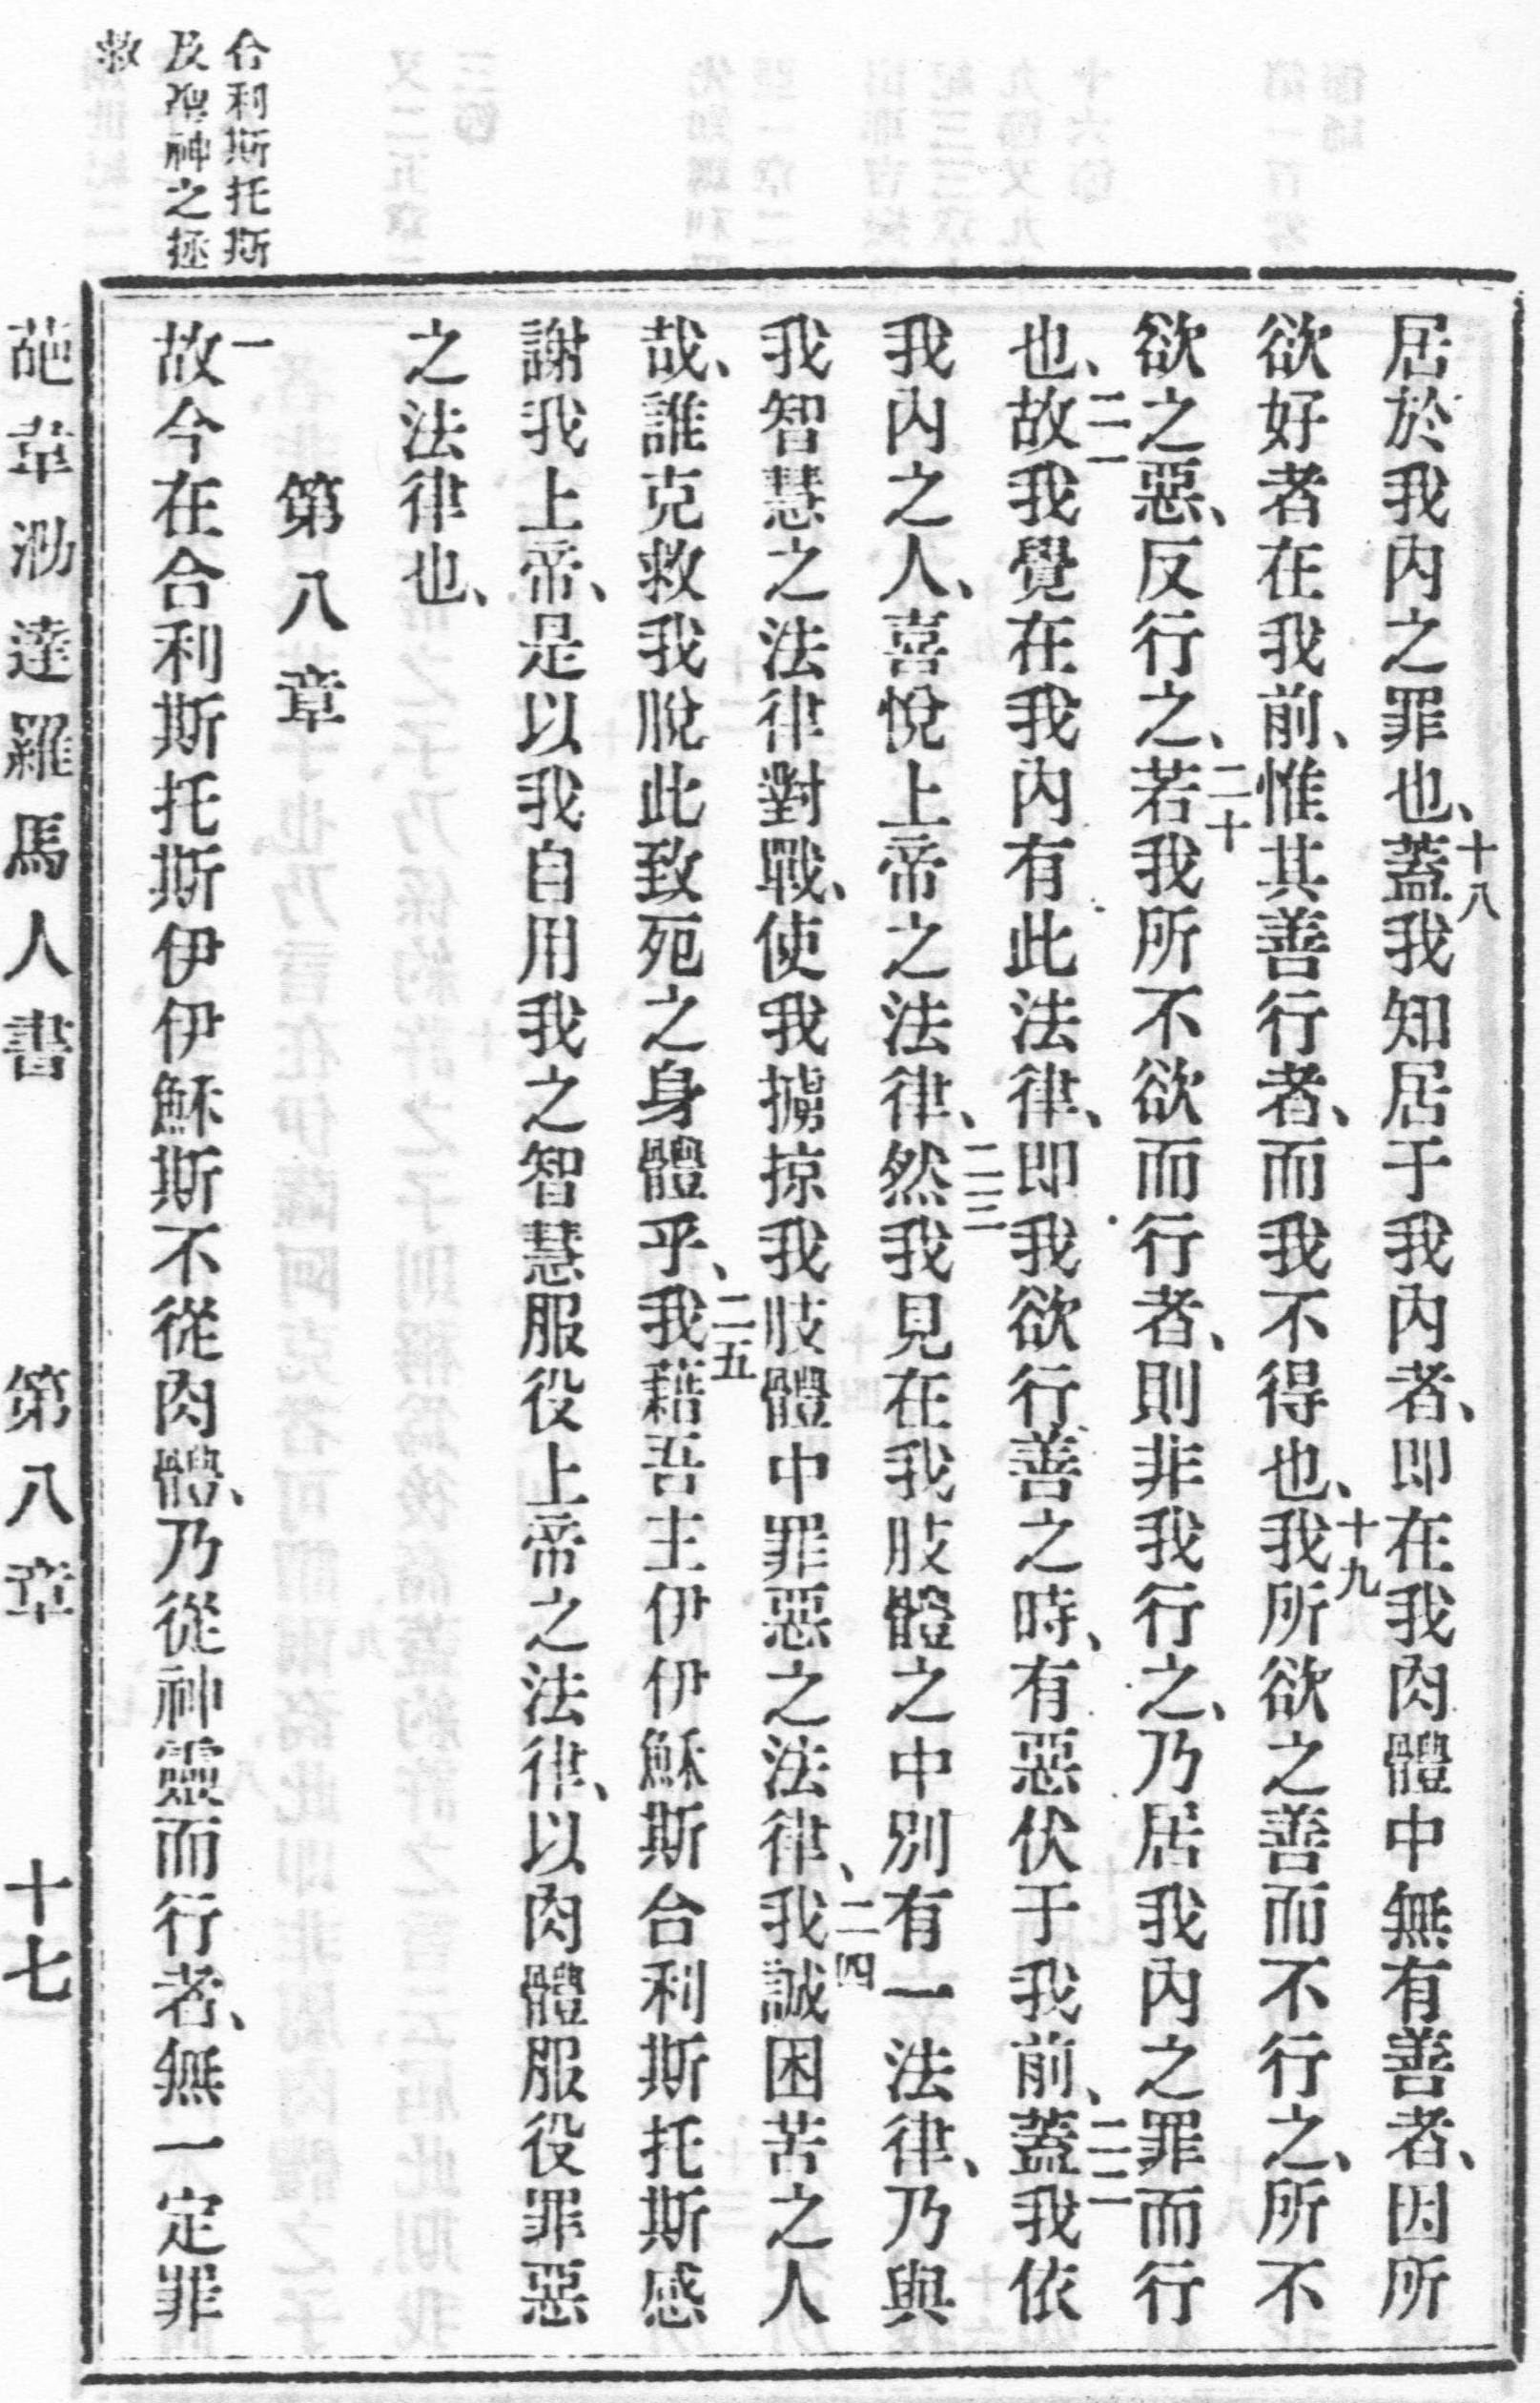 居於我內之罪也、十八蓋我知居于我內者、即在我肉體中無有善者、因所
欲好者在我前、惟其善行者、而我不得也、十九我所欲之善而不行之、所不
欲之惡、反行之、二十若我所不欲而行者、則非我行之、乃居我內之罪而行
也、二一故我覺在我內有此法律、即我欲行善之時、有惡伏于我前、二二蓋我依
我內之人、喜悅上帝之法律、二三然我見在我肢體之中別有一法律、乃與
我智慧之法律對戰、使我擄掠我肢體中罪惡之法律、二四我誠困苦之人
哉、誰克救我脫此致死之身體乎、二五我藉吾主伊伊穌斯合利斯托斯感
謝我上帝、是以我自用我之智慧服役上帝之法律、以肉體服役罪惡
之法律也、
第八章
合利斯托斯
及聖神之拯
救
一故今在合利斯托斯伊伊穌斯不從肉體、乃從神靈而行者、無一定罪
葩韋泐達羅馬人書 第八章 十七